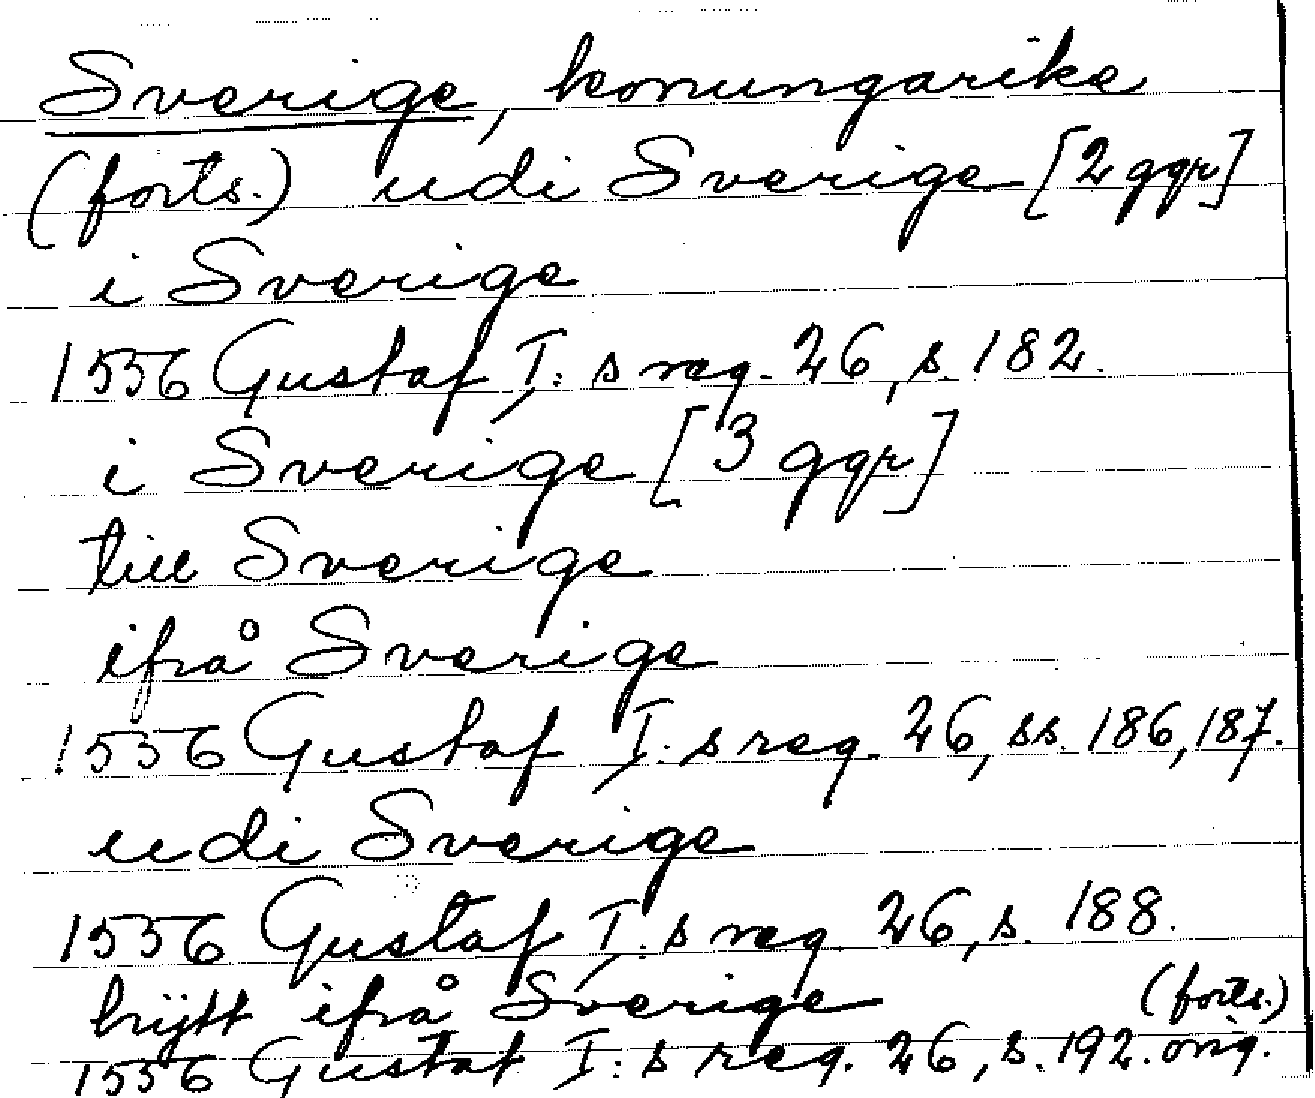 Sverige, konungarike
(forts.) udi Sverige [2 ggr]
i Sverige
1556 Gustaf I:s reg. 26, s. 182.
i Sverige [3 ggr]
till Sverige
ifrå Sverige
1556 Gustaf I:s reg. 26, ss. 186, 187.
udi Sverige
1556 Gustaf I:s reg. 26, s. 188.
ifrå Sverige (forts.)
1556 Gustaf I:s reg. 26, s. 192. orig.